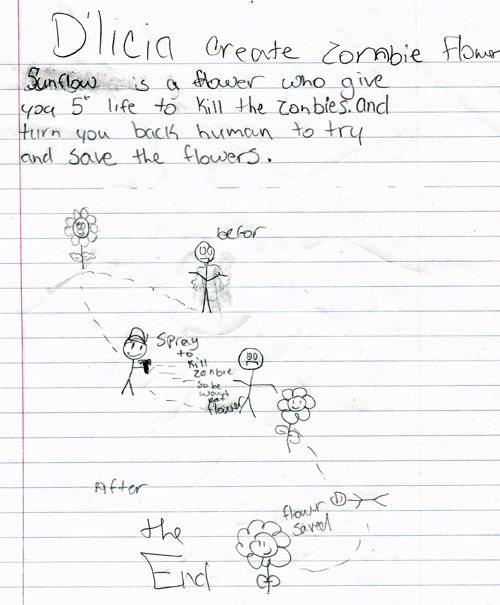 D'licia create Zombie flower
Sunflow is a flower who give
you 5 life to kill the zonbies.and
turn you back human to try
and save the flowers.
befor
Spray
to
kill
zombie
flower
After
flower
saved
the
End